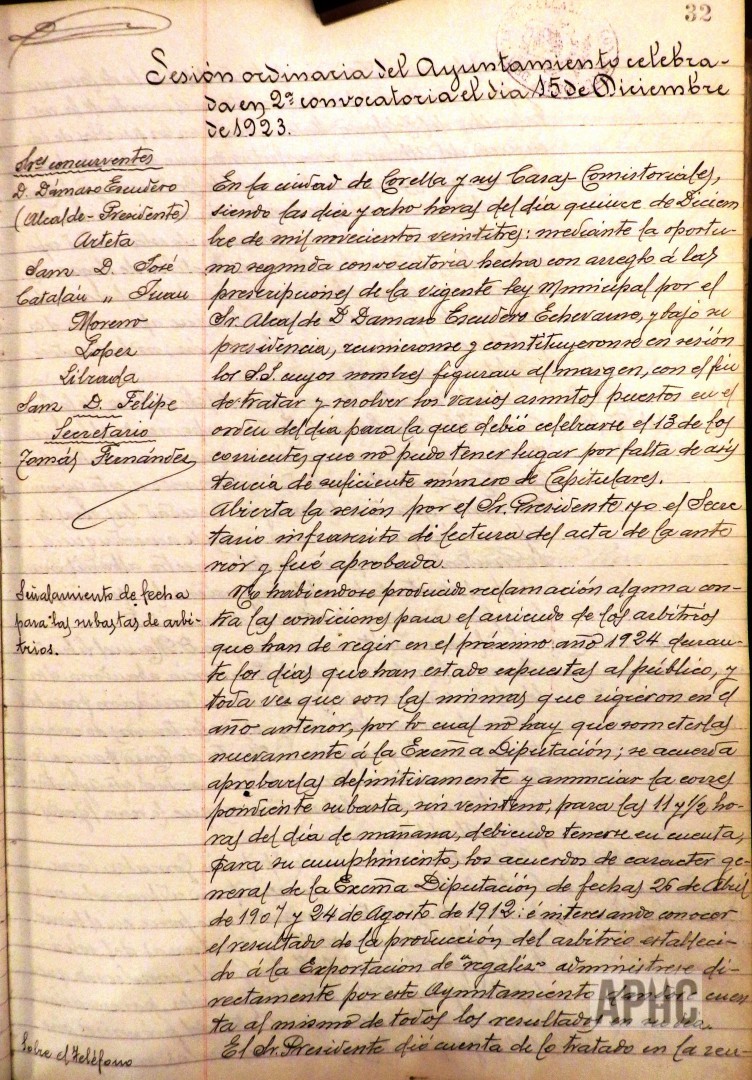 32
Sesión ordinaria del Ayuntamiento celebra-
da en 2ª convocatoria el dia 15 de Diciembre
de 1923.
Sres concurrentes
D. Dámaso Escudero
(Alcalde-Presidente)
Arteta
Sanz D. José
Catalán " Juan
Moreno
López
Librada
Sanz D. Felipe
Secretario
Tomás Fernández
En la ciudad de Corella y sus Casas Consistoriales,
siendo las diez y ocho horas del dia quince de Diciem
bre de mil novecientos veintitres: mediante la oportu-
na segunda convocatoria hecha con arreglo á las
prescripciones de la vigente ley Municipal por el
Sr. Alcalde D. Dámaso Escudero Echevarre, y bajo su
presidencia, reunieronse y constituyeronse en sesión
los S.S. cuyos nombres figuran al margen, con el fin
de tratar y resolver los varios asuntos puestos en el
orden del dia para la que debió celebrarse el 13 de los
corrientes que no pudo tener lugar por falta de asis
tencia de suficiente número de Capitulares.
Abierta la sesión por el Sr. Presidente yo el Secre
tario infrascrito di lectura del acta de la ante
rior y fué aprobada.
Señalamiento de fecha
para las subastas de arbi-
trios.
No habiendose producido reclamación alguna con-
tra las condiciones para el arriendo de los arbitrios
que han de regir en el próximo año 1924 duran-
te los dias que han estado expuestas al público, y
toda vez que son las mismas que rigieron en el
año anterior, por lo cual no hay que someterlas
nuevamente á la Excma Diputación; se acuerda
aprobarlas definitivamente y anunciar la corres
pondiente subasta, sin veinteno, para las 11 y 1/2 ho-
ras del dia de mañana, debiendo tenerse en cuenta,
para su cumplimiento, los acuerdos de caracter ge-
neral de la Excma Diputación de fechas 26 de Abril
de 1907 y 24 de Agosto de 1912: é interesando conocer
el resultado de la producción del arbitrio estableci-
do á la Exportación de "regaliz" administrese di-
rectamente por este Ayuntamiento cuen
ta al mismo de todos los resultados
APHC
Sobre el teléfono
El Sr. Presidente dió cuenta de lo tratado en la reu-